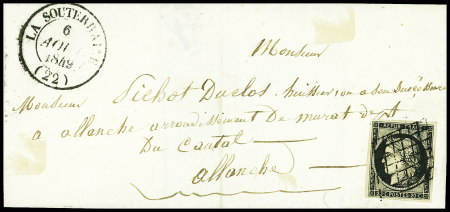 LA SOUTERRAINE
6
AOUT
1849
(22)
Monsieur
Monsieur Pichot Duclos, huissier ou a son Successeur
a allanche arrondissement de murat dept
Du Cantal
allanche
REPUB FRANC
20 C POSTES 20 C